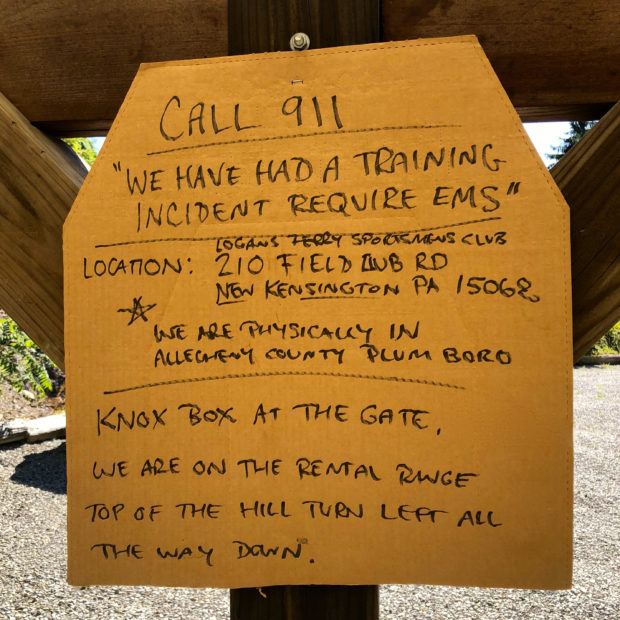 CALL 911
"WE HAVE HAD A TRAINING
INCIDENT REQUIRE EMS"
LOGANS FERRY SPORTSMENS CLUB
LOCATION: 210 FIELD CLUB RD
NEW KENSINGTON PA 15068
WE ARE PHYSICALLY IN
ALLEGHENY COUNTY PLUM BORO
KNOX BOX AT THE GATE,
WE ARE ON THE RENTAL RANGE
TOP OF THE HILL TURN LEFT ALL
THE WAY DOWN.